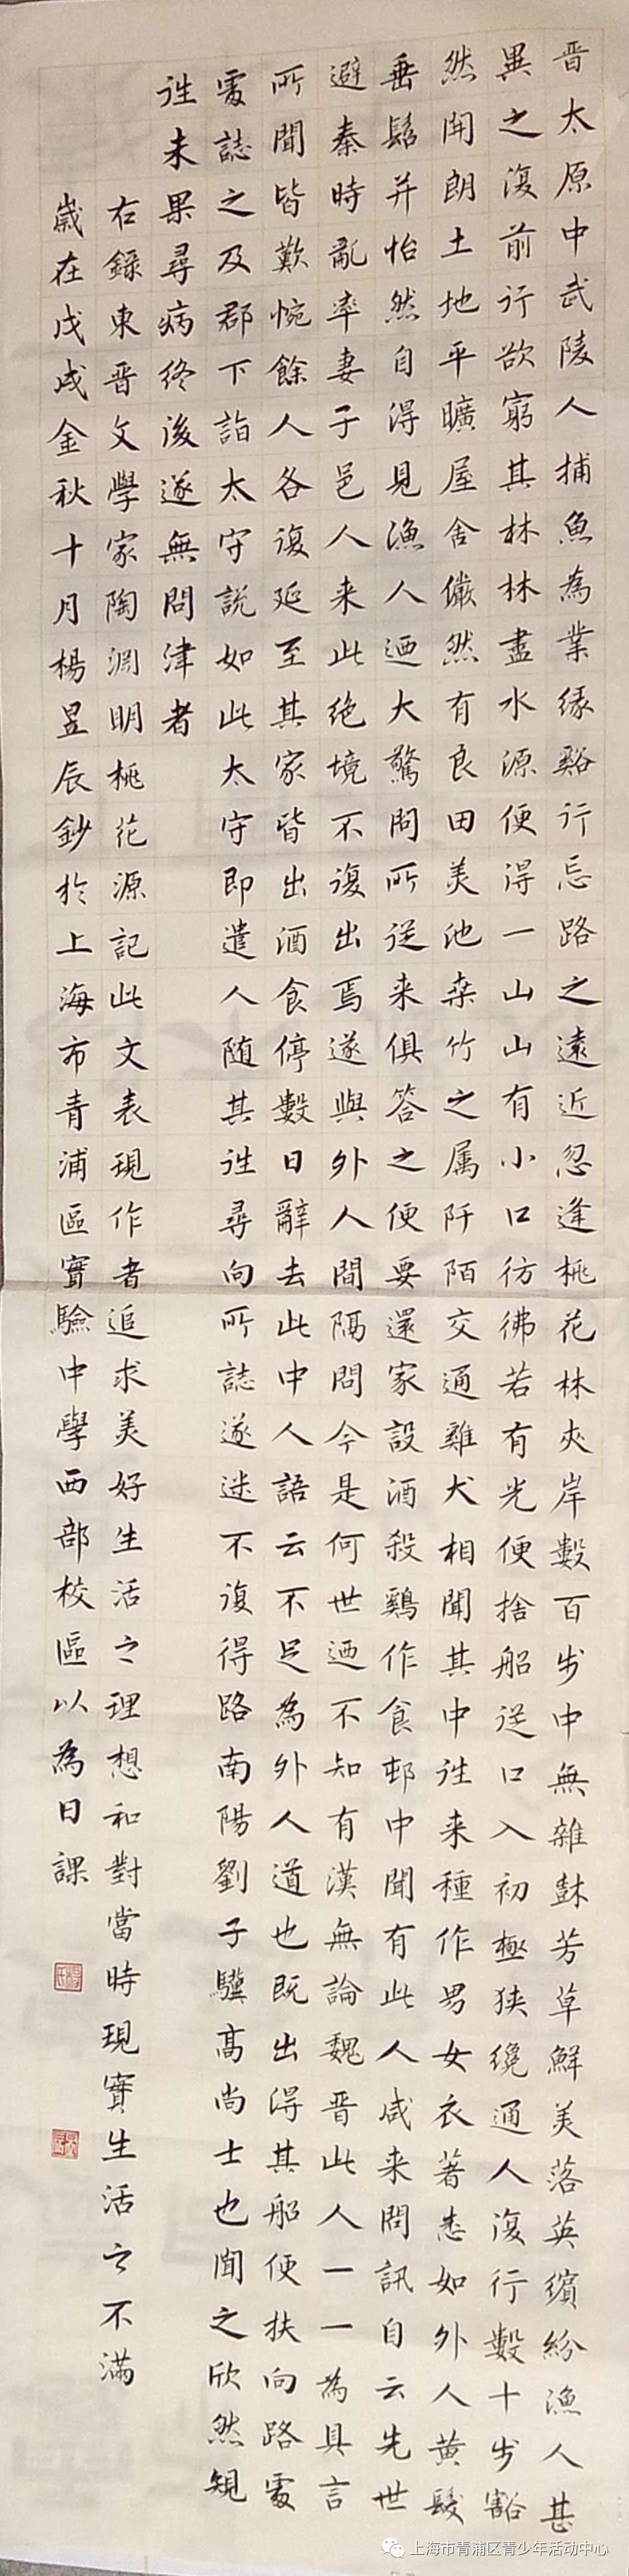 晋太原中武陵人捕魚為業緣谿行忘路之遠近忽逢桃花林夾岸數百步中無雜𣗳芳草鮮美落英繽紛漁人甚
異之復前行欲窮其林林盡水源便得一山山有小口彷彿若有光便捨船從口入初極狹纔通人復行數十步豁
然開朗土地平曠屋舍儼然有良田美池桑竹之属阡陌交通雞犬相聞其中往来種作男女衣著悉如外人黄髮
垂髫并怡然自得見漁人迺大驚問所從来俱答之便要還家設酒殺鷄作食邨中聞有此人咸来問訊自云先世
避秦時亂率妻子邑人来此绝境不復出焉遂與外人間隔問今是何世迺不知有漢無論魏晋此人一一為具言
所聞皆歎惋餘人各復延至其家皆出酒食停數日辭去此中人語云不足為外人道也既出得其船便扶向路處
處誌之及郡下詣太守説如此太守即遣人随其往尋向所誌遂迷不復得路南陽劉子驥高尚士也聞之欣然規
往未果尋病终後遂無問津者
右録東晋文學家陶淵明桃花源記此文表現作者追求美好生活之理想和對當時現實生活之不满
歲在戊戌金秋十月楊昱辰鈔於上海市青浦區實驗中學西部校區以為日課
上海市青浦区青少年活动中心